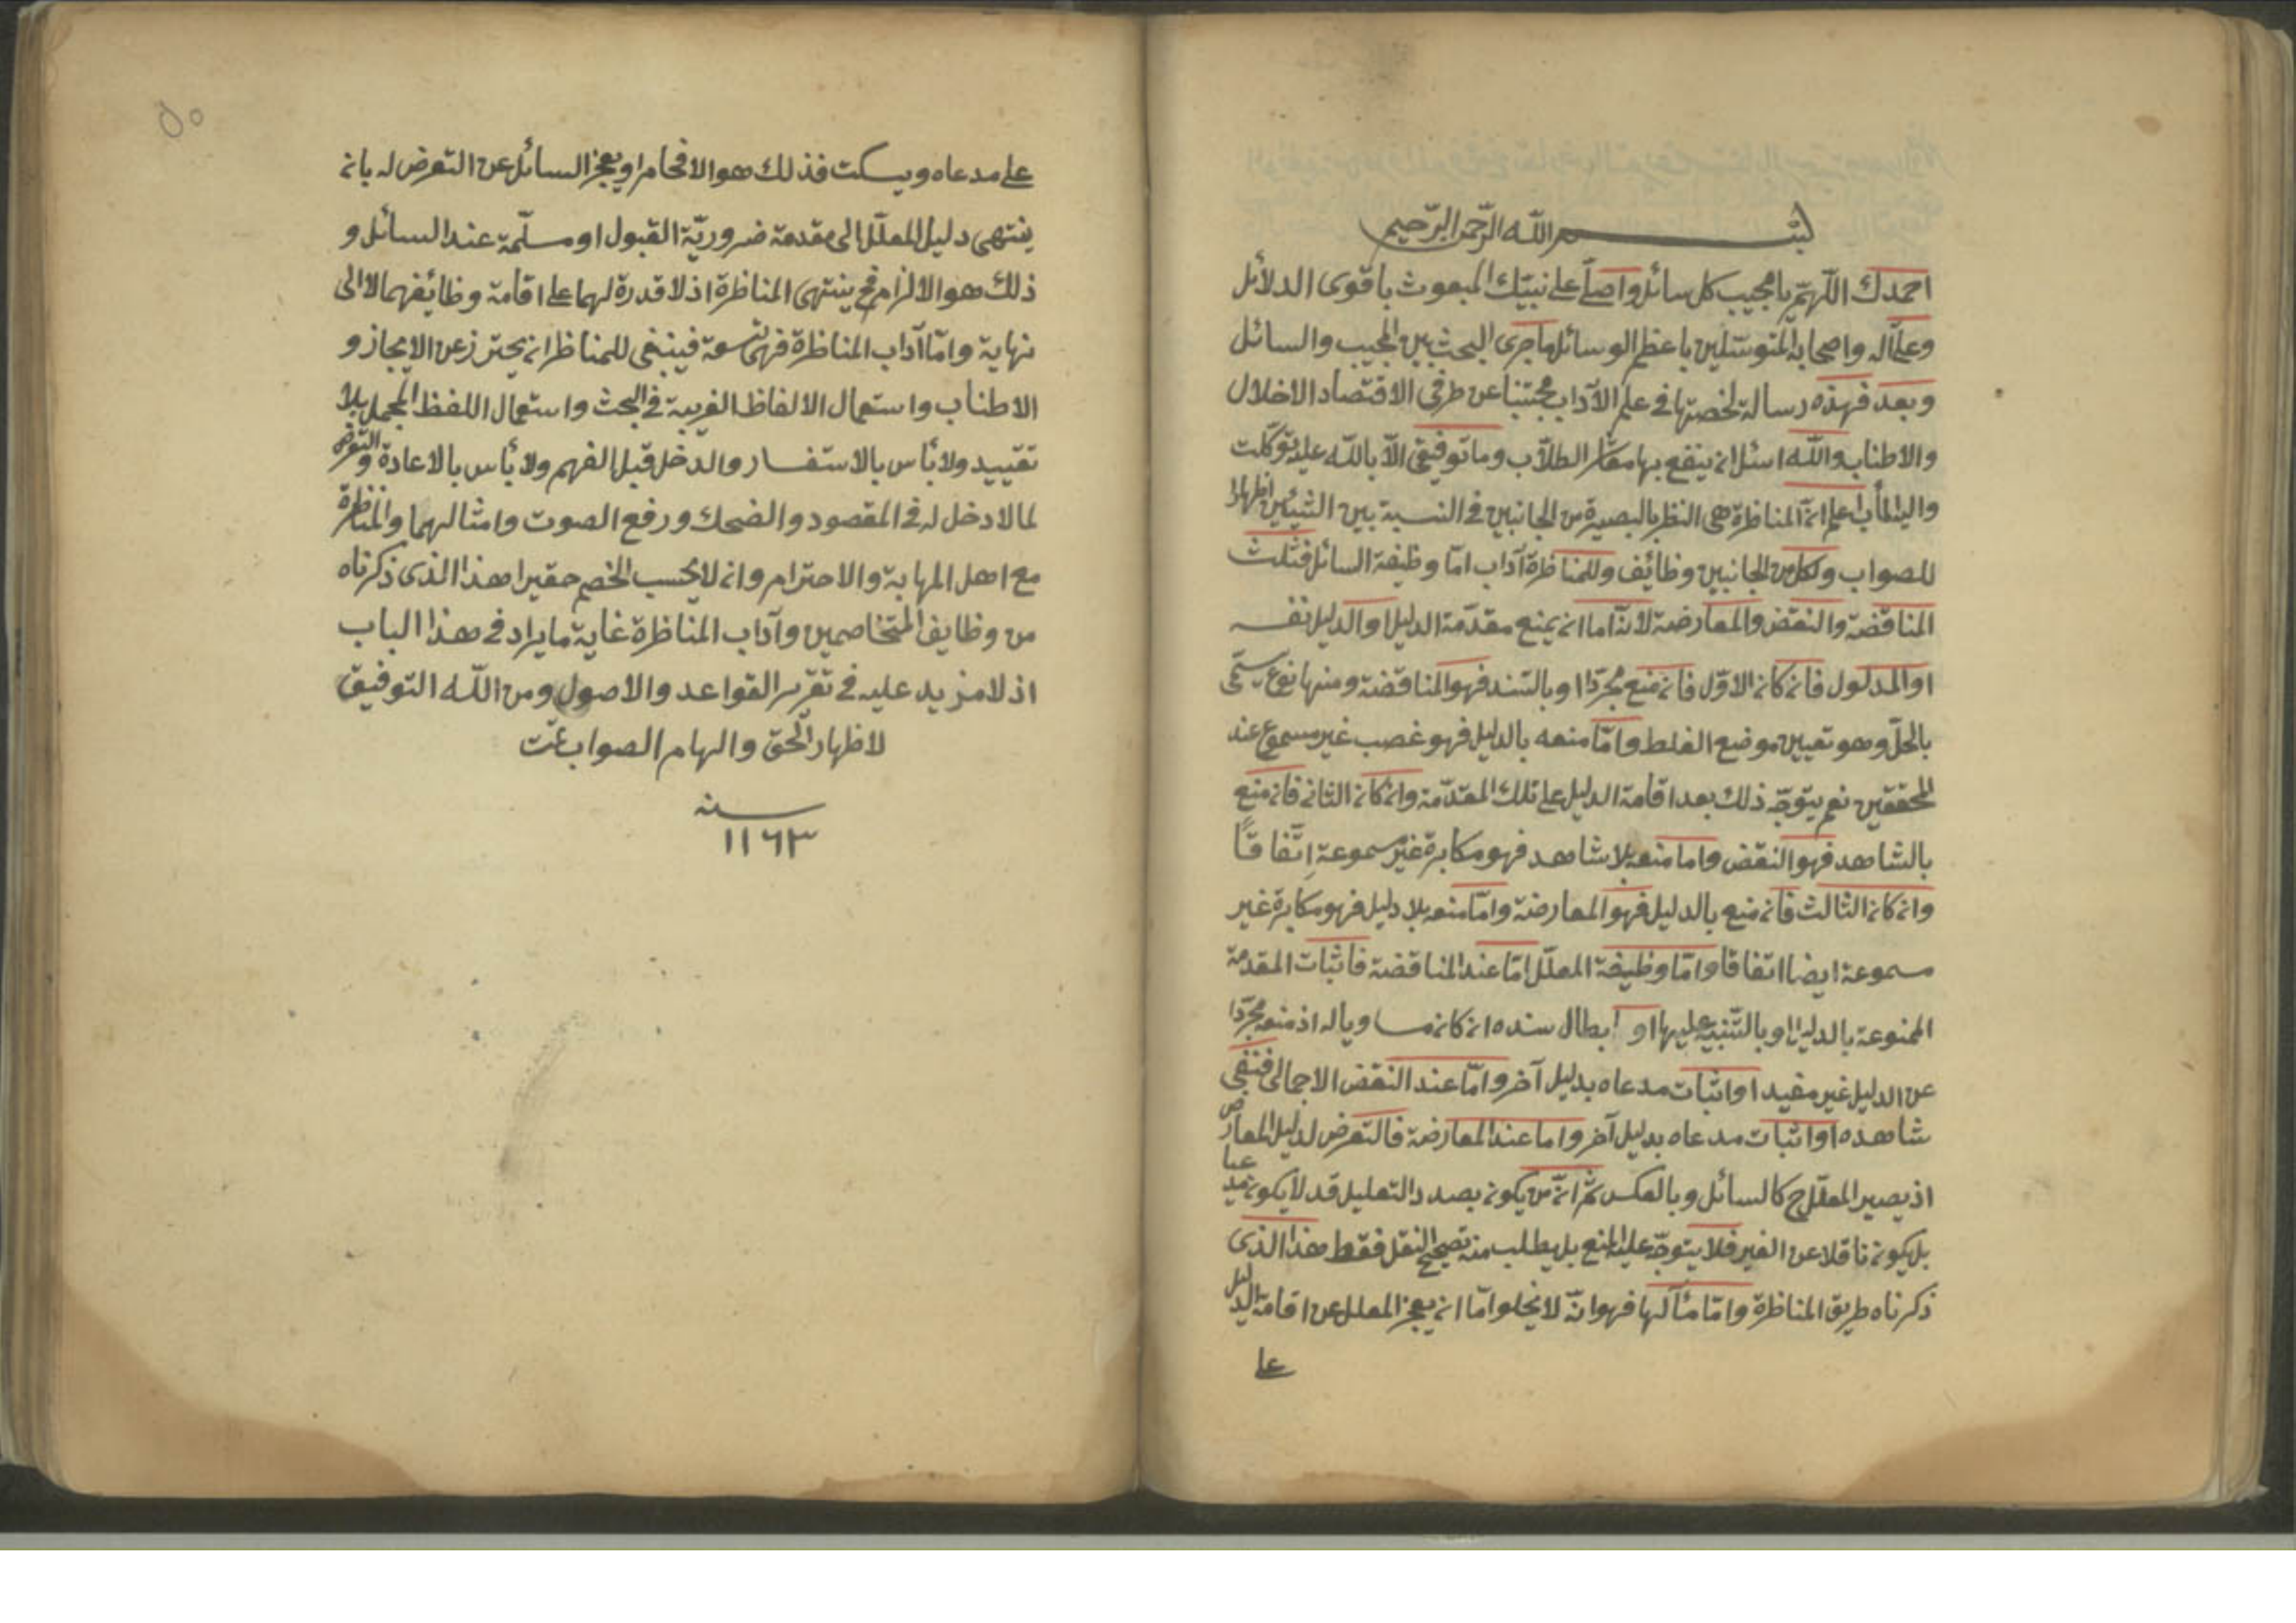 بسم الله الرحمن الرحيم
احمدك اللّهمّ يا مجيب كل سائل واصلّى على نبيّك المبعوث باقوى الدلائل
وعلى آله واصحابه المتوسّلين باعظم الوسائل ما جرى البحث بين المجيب والسائل
وبعد فهذه رسالة لخصتها في علم الآداب مجتنبا عن طرفى الاقتصاد الاخلال
والاطناب والله اسئل ان ينفع بها معاشر الطلّاب وما توفيقى الّا بالله عليه توكّلت
واليه المآب اعلم انّ المناظرة هى النظر بالبصيرة من الجانبين في النسبة بين الشيئين اظهارا
للصواب ولكل من الجانبين وظائف وللمناظرة آداب امّا وظيفة السائل فثلث
المناقضة والنقض والمعارضة لانّه اما ان يمنع مقدّمة الدليل او الدليل نفسه
او المدلول فان كان الاوّل فان منع مجرّدا او بالسّند فهو المناقضة ومنها نوع يسمّى
بالحلّ وهو تعيين موضع الغلط وامّا منعه بالدليل فهو غصب غير مسموع عند
المحققين نعم يتوجّه ذلك بعد اقامة الدليل على تلك المقدّمة وان كان الثانى فان منع
بالشاهد فهو النقض واما منعه بلا شاهد فهو مكابرة غير مسموعة اتّفاقًا
وان كان الثالث فان منع بالدليل فهو المعارضة وامّا منعه بلا دليل فهو مكابرة غير
مسموعة ايضا اتفاقا وامّا وظيفة المعلّل امّا عند المناقضة فاثبات المقدمة
الممنوعة بالدليل او بالتّنبيه عليها او ابطال سنده ان كان مساويا له اذ منعه مجرّدا
عن الدليل غير مفيد او اثبات مدعاه بدليل آخر وامّا عند النقض الاجمالى فنفى
شاهده او اثبات مدعاه بدليل آخر واما عند المعارضة فالتعرض لدليل المعارض
اذ يصير المعلّل ح كالسائل وبالعكس ثم انّ من يكون بصدد التعليل قد لا يكون مدعيا
بل يكون ناقلا عن الغير فلا يتوجّه عليه المنع بل يطلب منه تصحيح النقل فقط هذا الذى
ذكرناه طريق المناظرة وامّا مآلها فهو انّه لا يخلو امّا ان يعجز المعلل عن اقامة الدليل
على
على مدعاه ويسكت فذلك هو الافحام او يعجز السائل عن التعرض له بان
ينتهى دليل المعلّل الى مقدمة ضروريّة القبول او مسلّمة عند السائل و
ذلك هو الالزام فح ينتهى المناظرة اذ لا قدرة لهما على اقامة وظائفهما لا الى
نهاية وامّا آداب المناظرة فهى تسعة فينبغى للمناظر ان يحترز عن الايجاز و
الاطناب واستعمال الالفاظ الغريبة في البحث واستعمال اللفظ المجمل بلا
تقييد ولا بأس بالاستفسار والدخل قبل الفهم ولا بأس بالاعادة والتعرض
لما لا دخل له في المقصود والضحك ورفع الصوت وامثالهما والمناظرة
مع اهل المهابة والاحترام وان لا يحسب الخصم حقيرا هذا الذى ذكرناه
من وظايف المتخاصمين وآداب المناظرة غاية ما يراد في هذا الباب
اذ لا مزيد عليه في تقرير القواعد والاصول ومن اللّه التوفيق
لاظهار الحق والهام الصواب تمت
سنه
١١٦٣
٥٠